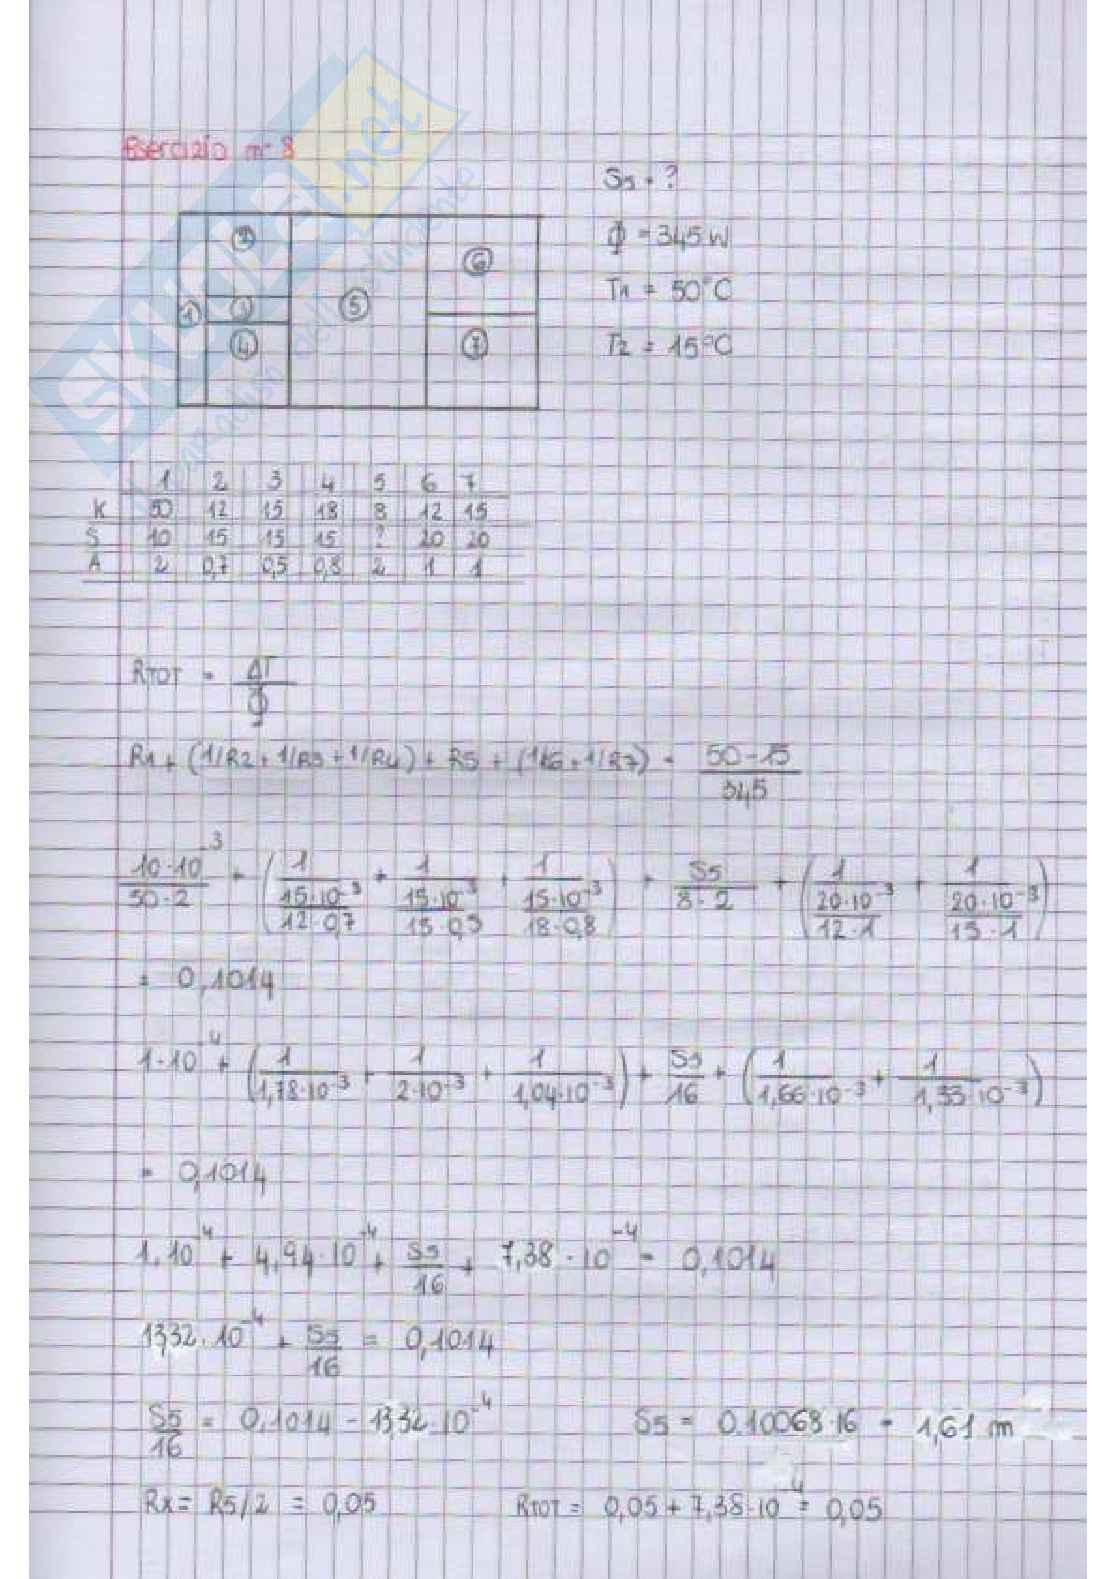 Esercizio n° 8
S5 = ?
Φ = 345 W
T1 = 50°C
T2 = 15°C
2
6
1 3 5
4 7
1 2 3 4 5 6 7
K 50 12 15 18 8 12 15
S 10 15 15 15 ? 20 20
A 2 0,7 0,5 0,8 2 1 1
RTOT = ΔT / Φ
R1 + (1/R2 + 1/R3 + 1/R4) + R5 + (1/R6 + 1/R7) = 50-15 / 345
10·10⁻³ / 50·2 + (1 / 15·10⁻³ / 12·0,7 + 1 / 15·10⁻³ / 15·0,5 + 1 / 15·10⁻³ / 18·0,8) + S5 / 8·2 + (1 / 20·10⁻³ / 12·1 + 1 / 20·10⁻³ / 15·1)
= 0,1014
1·10⁻⁴ + (1 / 1,78·10⁻³ + 1 / 2·10⁻³ + 1 / 1,04·10⁻³) + S5 / 16 + (1 / 1,66·10⁻³ + 1 / 1,33·10⁻³)
= 0,1014
1·10⁻⁴ + 4,94·10⁻⁴ + S5 / 16 + 7,38·10⁻⁴ = 0,1014
13,32·10⁻⁴ + S5 / 16 = 0,1014
S5 / 16 = 0,1014 - 13,32·10⁻⁴ S5 = 0,10068·16 = 1,61 m
Rx = R5/2 = 0,05 RTOT = 0,05 + 7,38·10⁻⁴ = 0,05
SKUOLA.net